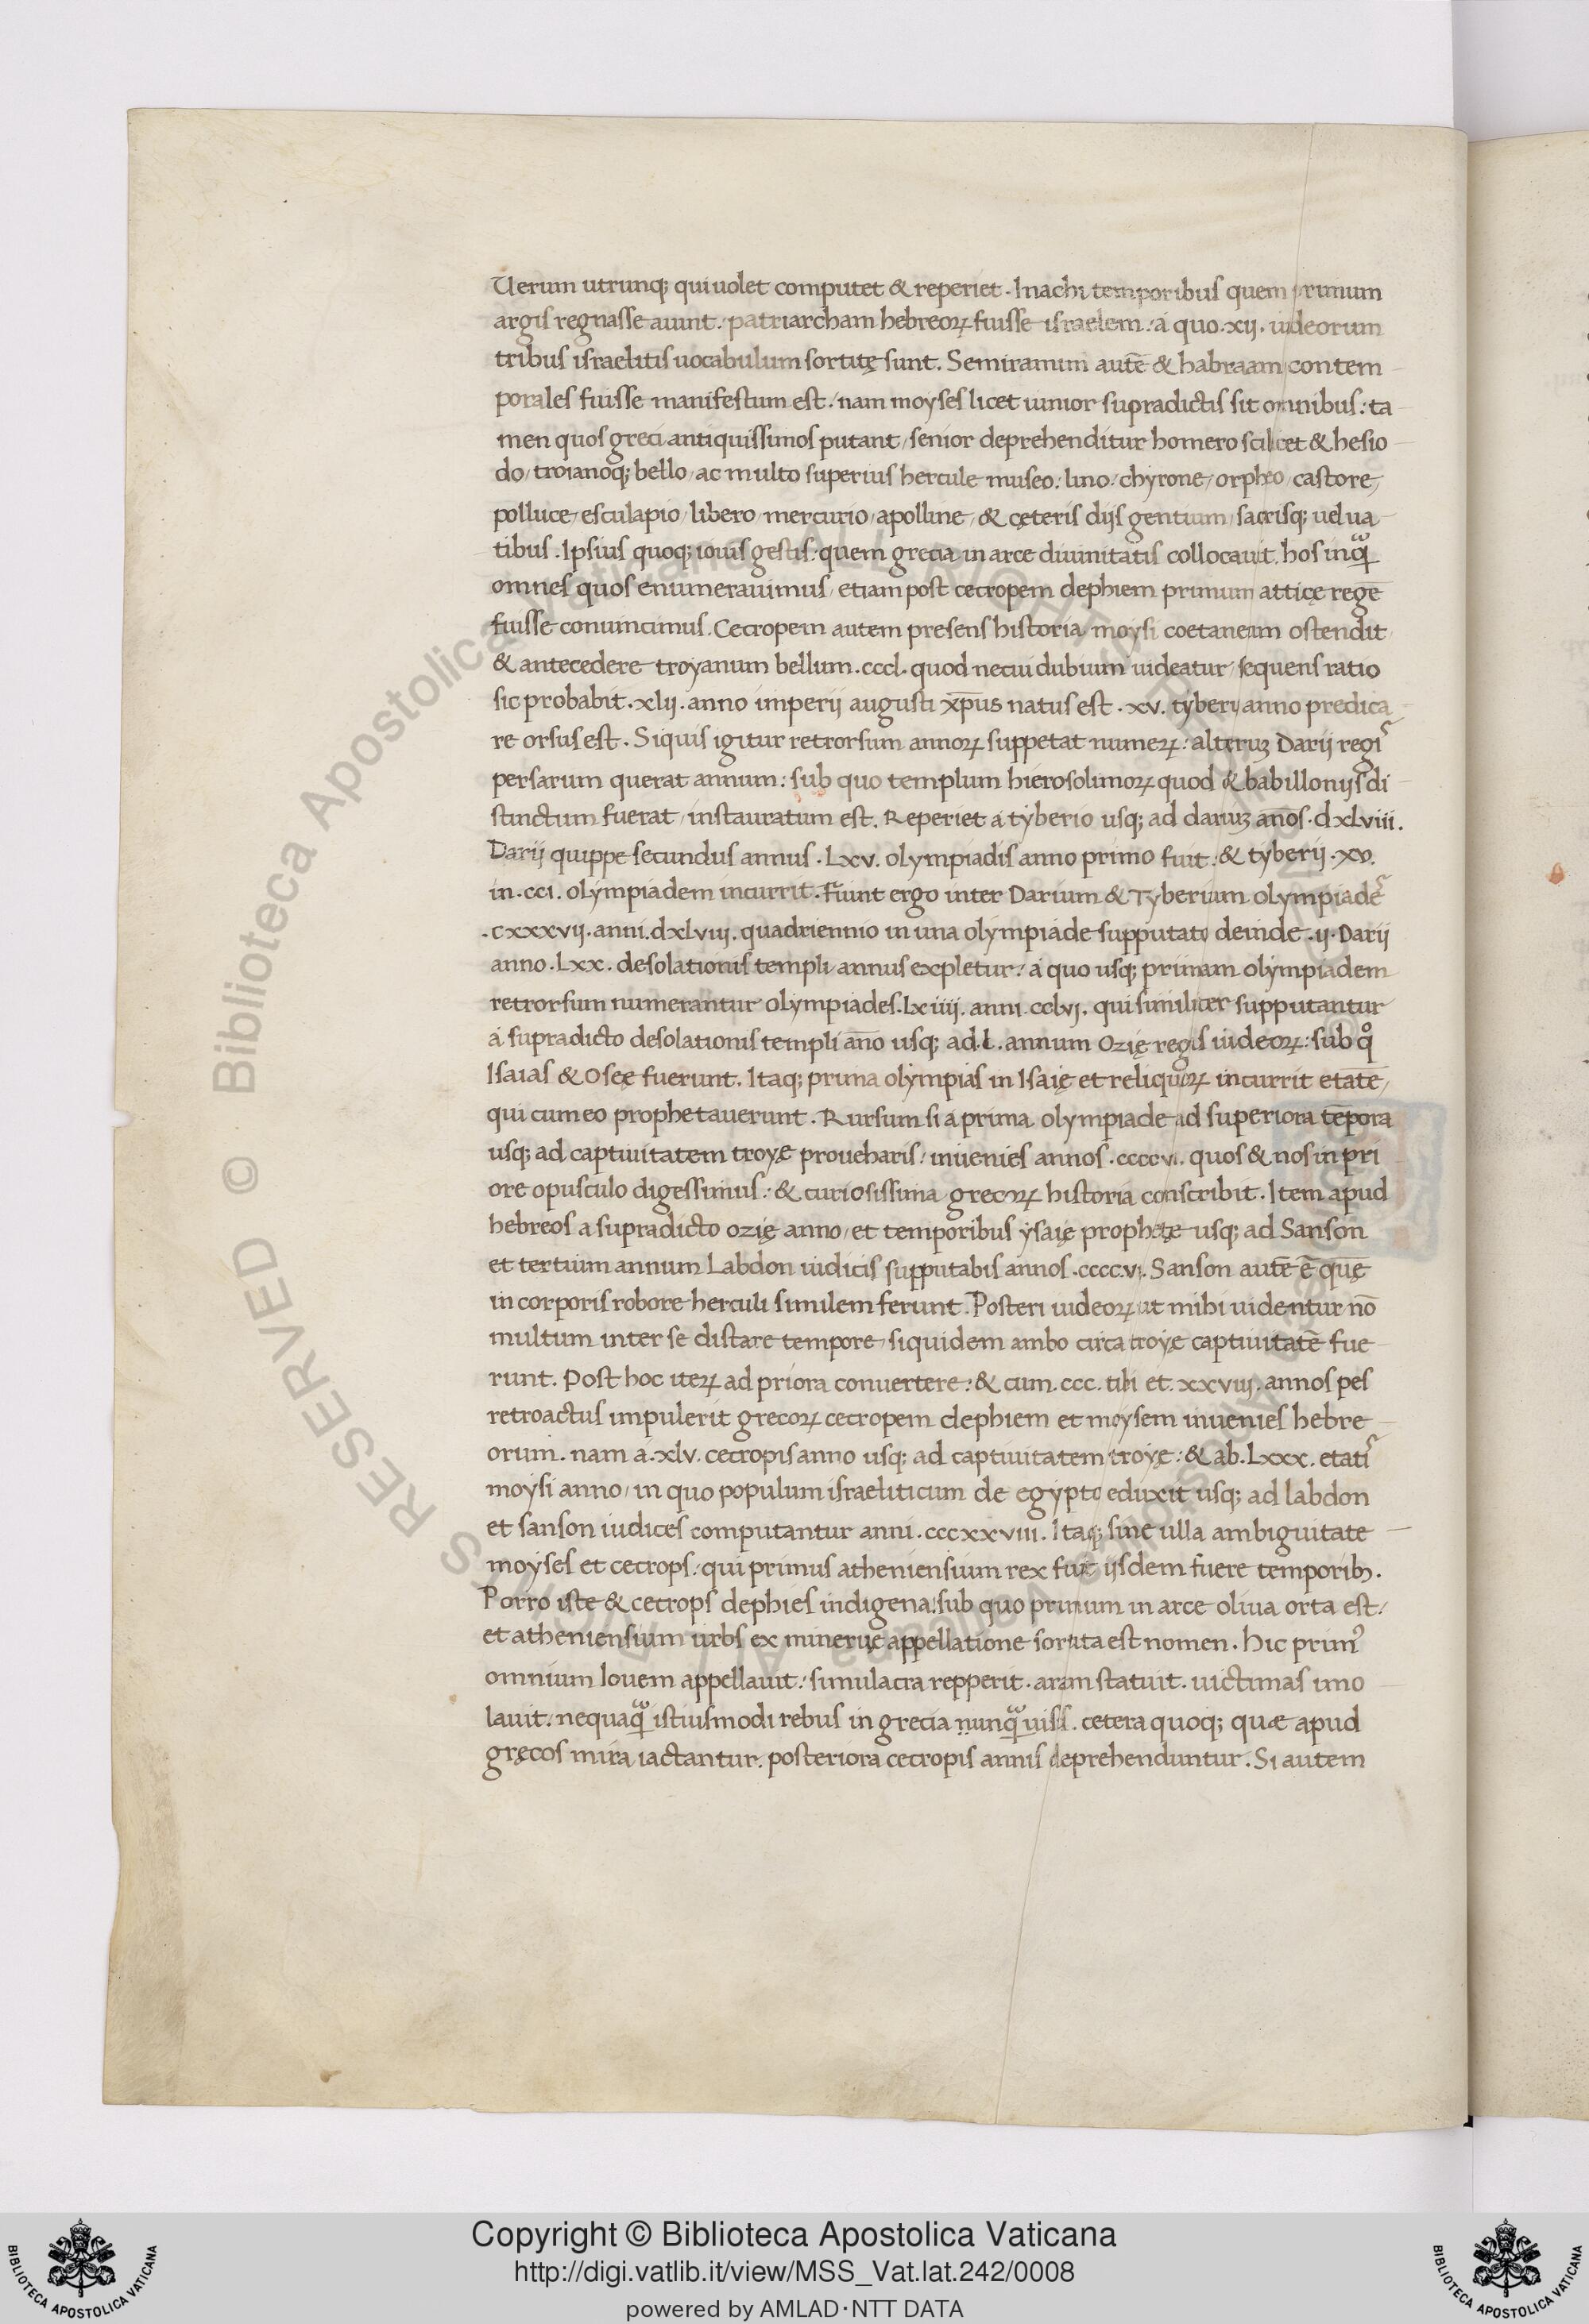 Uerum utrunq; qui uolet computet & reperiet. Inachi temporibus quem primum
argis regnasse aiunt: patriarcham hebreoꝝ fuisse israelem: a quo .xij. iudeorum
tribus israelitis uocabulum sortitę sunt. Semiramim autē & habraam contem
porales fuisse manifestum est: nam moyses licet iunior supradictis sit omnibus: ta
men quos greci antiquissimos putant, senior deprehenditur homero scilicet & hesio
do, troianoq; bello, ac multo superius hercule museo. lino: chyrone, orpheo, castore,
polluce, esculapio, libero, mercurio, apolline, & cęteris dijs gentium, sacrisq; uel ua
tibus. Ipsius quoq; iouis gestis: quem grecia in arce diuinitatis collocauit. hos inqᷓ
omnes quos enumerauimus, etiam post cecropem dephiem primum atticę regē
fuisse conuincimus. Cecropem autem presens historia moysi coetaneum ostendit
& antecedere troyanum bellum .cccl. quod necui dubium uideatur, sequens ratio
sic probabit .xlij. anno imperij augusti xp̄us natus est .xv. tyberij anno predica
re orsus est. Siquis igitur retrorsum annoꝝ suppetat numeꝝ: alteruꝫ Darij regiˢ
persarum querat annum: sub quo templum hierosolimoꝝ quod & babillonijs di
stinctum fuerat, instauratum est. Reperiet a tyberio usq; ad dariuꝫ an̄os .dxlviii.
Darij quippe secundus annus .Lxv. olympiadis anno primo fuit: & tyberij .xv.
in .cci. olympiadem incurrit. Fiunt ergo inter Darium & Tyberium olympiadeˢ
.cxxxvij. anni .dxlviij. quadriennio in una olympiade supputato deinde .ij. Darij
anno .Lxx. desolationis templi annus expletur: a quo usq; primam olympiadem
retrorsum numerantur olympiades .Lxiiij. anni cclvj. qui similiter supputantur
a supradicto desolationis templi an̄o usq; ad .L. annum Ozię regis iudeoꝝ: sub qͦ
Isaias & Oseę fuerunt. Itaq; prima olympias in Isaię et reliquoꝝ incurrit etatē,
qui cum eo prophetauerunt. Rursum si a prima olympiade ad superiora tēpora
usq; ad captiuitatem troyę proueharis: inuenies annos .ccccvi. quos & nos in pri
ore opusculo digessimus: & curiosissima grecoꝝ historia conscribit. Item apud
hebreos a supradicto ozię anno, et temporibus ysaię prophetę usq; ad Sanson
et tertium annum Labdon iudicis supputabis annos .ccccvi. Sanson autē ē quē
in corporis robore herculi similem ferunt. Posteri iudeoꝝ ut mihi uidentur nō
multum inter se distare tempore, siquidem ambo circa troyę captiuitatē fue
runt. Post hoc iteꝝ ad priora conuertere: & cum .ccc. tibi et .xxviij. annos pes
retroactus impulerit grecoꝝ cecropem dephiem et moysem inuenies hebre
orum. nam a .xlv. cecropis anno usq; ad captiuitatem troyę: & ab .Lxxx. etatiˢ
moysi anno, in quo populum israeliticum de egypto eduxit usq; ad labdon
et sanson iudices computantur anni .cccxxviii. Itaq; sine ulla ambiguitate
moyses et cecrops: qui primus atheniensium rex fuit ijsdem fuere temporibꝫ.
Porro iste & cecrops dephies indigena: sub quo primum in arce oliua orta est:
et atheniensium urbs ex mineruę appellatione sortita est nomen. Hic primꝰ
omnium Iouem appellauit: simulacra repperit. aram statuit. uictimas imo
lauit. nequaqᷓ istiusmodi rebus in grecia nunqᷓ uisis. cetera quoq; quæ apud
gręcos mira iactantur. posteriora cecropis annis deprehenduntur. Si autem
Copyright © Biblioteca Apostolica Vaticana
http://digi.vatlib.it/view/MSS_Vat.lat.242/0008
powered by AMLAD·NTT DATA